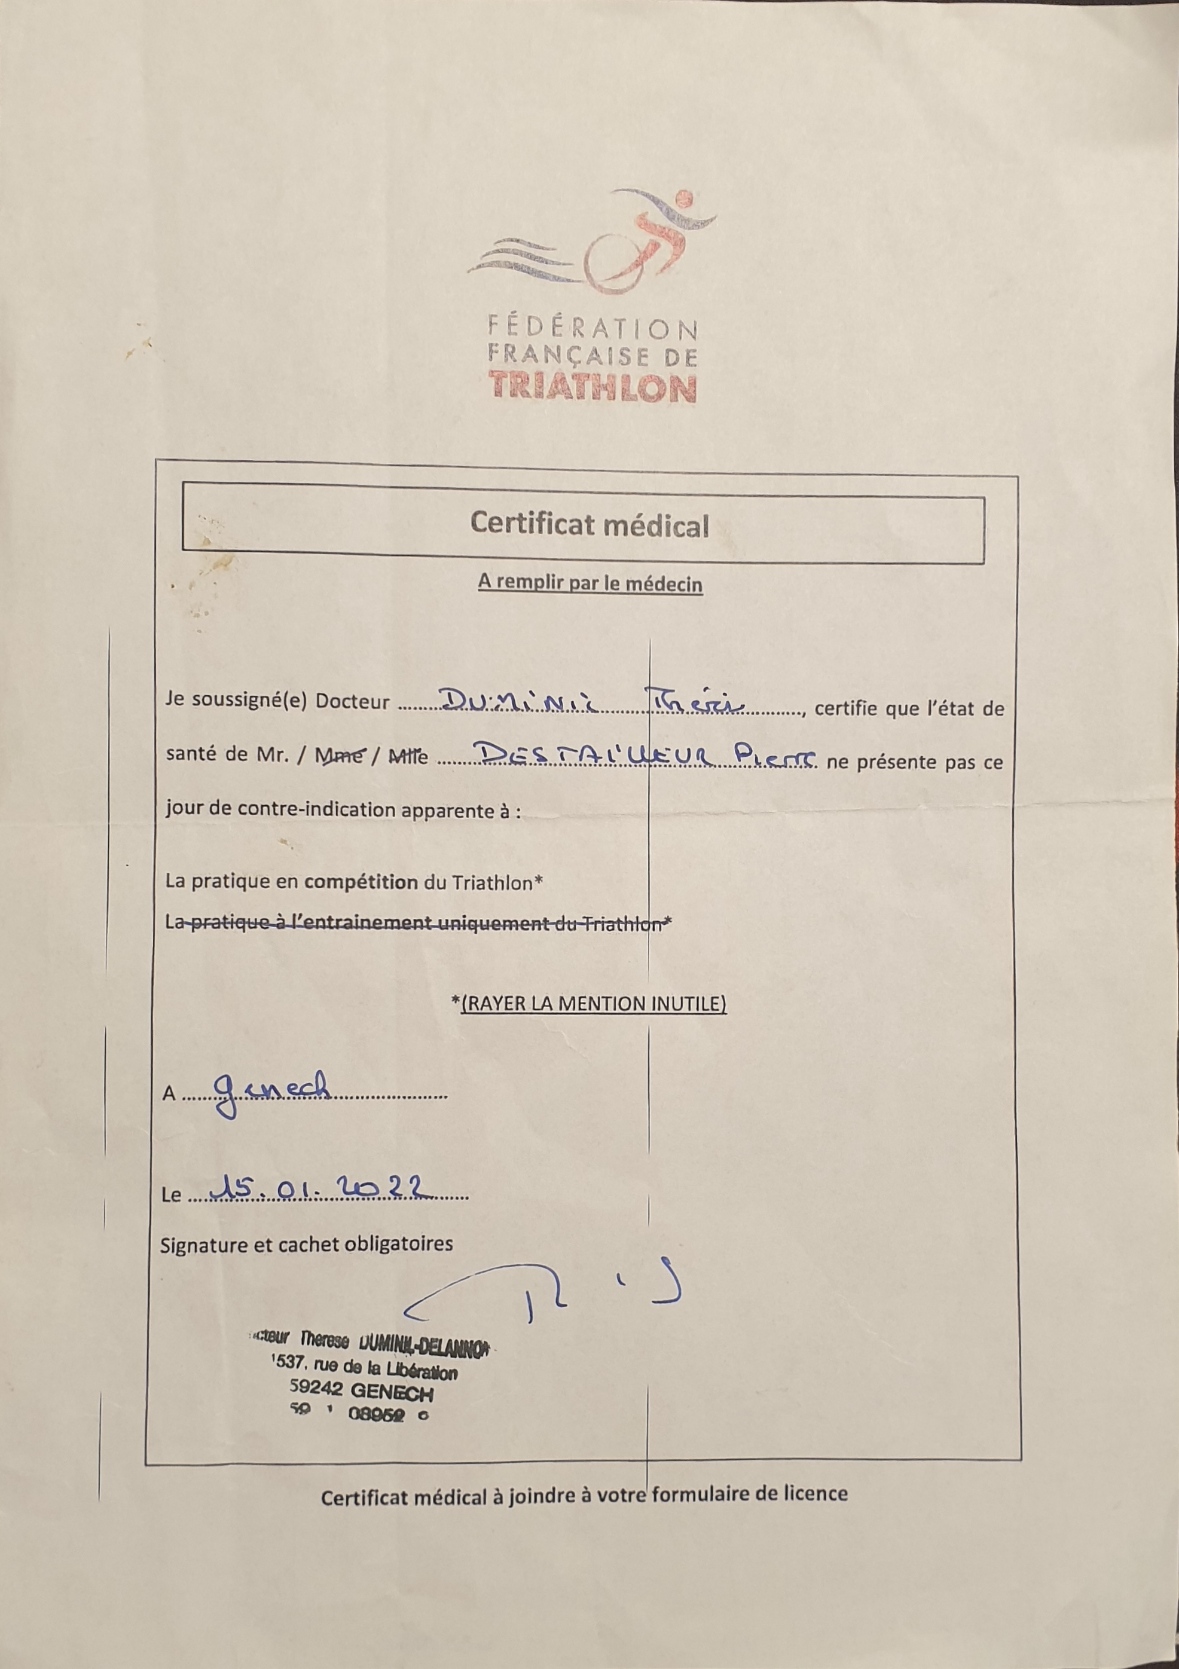 FÉDÉRATION
FRANÇAISE DE
TRIATHLON
Certificat médical
A remplir par le médecin
Je soussigné(e) Docteur ........DUMINIL Thérèse..........., certifie que l'état de
santé de Mr. / Mme / Mlle .......DESTAILLEUR Pierre. ne présente pas ce
jour de contre-indication apparente à :
La pratique en compétition du Triathlon*
La pratique à l'entrainement uniquement du Triathlon*
*(RAYER LA MENTION INUTILE)
A .......genech........................
Le ....15.01.2022........
Signature et cachet obligatoires
cteur Therese DUMINIL-DELANNO
1537, rue de la Libération
59242 GENECH
59 1 08952 6
Certificat médical à joindre à votre formulaire de licence